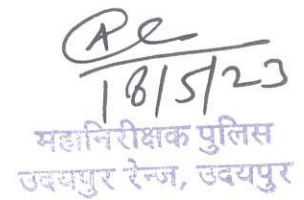 18/5/23
महानिरीक्षक पुलिस
उदयपुर रेन्ज, उदयपुर